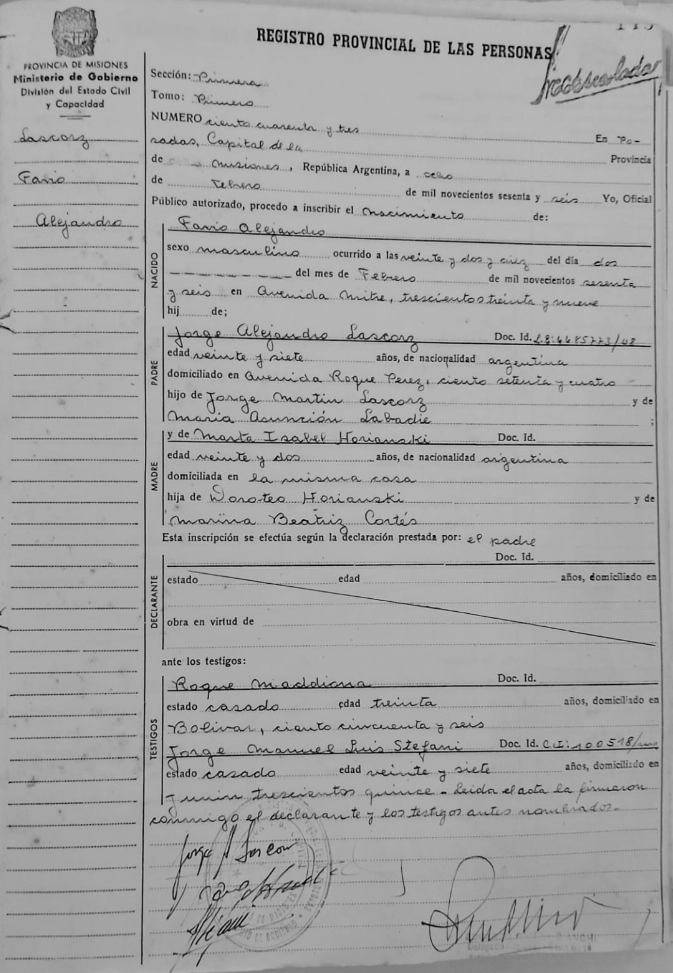 PROVINCIA DE MISIONES
Ministerio de Gobierno
División del Estado Civil
y Capacidad
Lascorz
Favio
Alejandro
REGISTRO PROVINCIAL DE LAS PERSONAS
Sección: Primera
Tomo: Primero
NUMERO ciento cuarenta y tres En Po-
sadas, Capital de la Provincia
de Misiones, República Argentina, a ocho
de Febrero de mil novecientos sesenta y seis Yo, Oficial
Público autorizado, procedo a inscribir el nacimiento de:
NACIDO
Favio Alejandro
sexo masculino ocurrido a las veinte y dos y diez del día dos
del mes de Febrero de mil novecientos sesenta
y seis en Avenida Mitre, trescientos treinta y nueve
hij de;
PADRE
Jorge Alejandro Lascorz Doc. Id.
edad veinte y siete años, de nacionalidad argentina
domiciliado en Avenida Roque Perez, ciento setenta y cuatro
hijo de Jorge Martin Lascorz y de
Maria Asunción Labadie ;
MADRE
y de Marta Isabel Horianski Doc. Id.
edad veinte y dos años, de nacionalidad argentina
domiciliada en la misma casa
hija de Doroteo Horianski y de
Marina Beatriz Cortés
Esta inscripción se efectúa según la declaración prestada por: el padre
DECLARANTE
Doc. Id.
estado edad años, domiciliado en
obra en virtud de
ante los testigos:
TESTIGOS
Roque Maddiona Doc. Id.
estado casado edad treinta años, domiciliado en
Bolivar, ciento cincuenta y seis
Jorge Manuel Luis Stefani Doc. Id. C.I: 100518/
estado casado edad veinte y siete años, domiciliado en
Junin trescientos quince - Leida el acta la firmaron
conmigo el declarante y los testigos antes nombrados.-